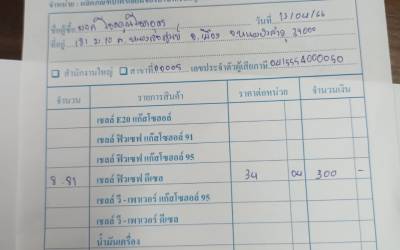 ชื่อผู้ซื้อ วันที่ 13/04/66
ที่อยู่ 181 ม.10 ต. อ.เมือง จ.หนองบัวลำภู 39000
สำนักงานใหญ่ สาขาที่ 00005 เลขประจำตัวผู้เสียภาษี 0415554000050
จำนวน รายการสินค้า ราคาต่อหน่วย จำนวนเงิน
เชลล์ E20 แก๊สโซฮอล์
เชลล์ ฟิวเซฟ แก๊สโซฮอล์ 91
เชลล์ ฟิวเซฟ แก๊สโซฮอล์ 95
8.81 เชลล์ ฟิวเซฟ ดีเซล 34 04 300 -
เชลล์ วี - เพาเวอร์ แก๊สโซฮอล์ 95
เชลล์ วี - เพาเวอร์ ดีเซล
น้ำมันเครื่อง